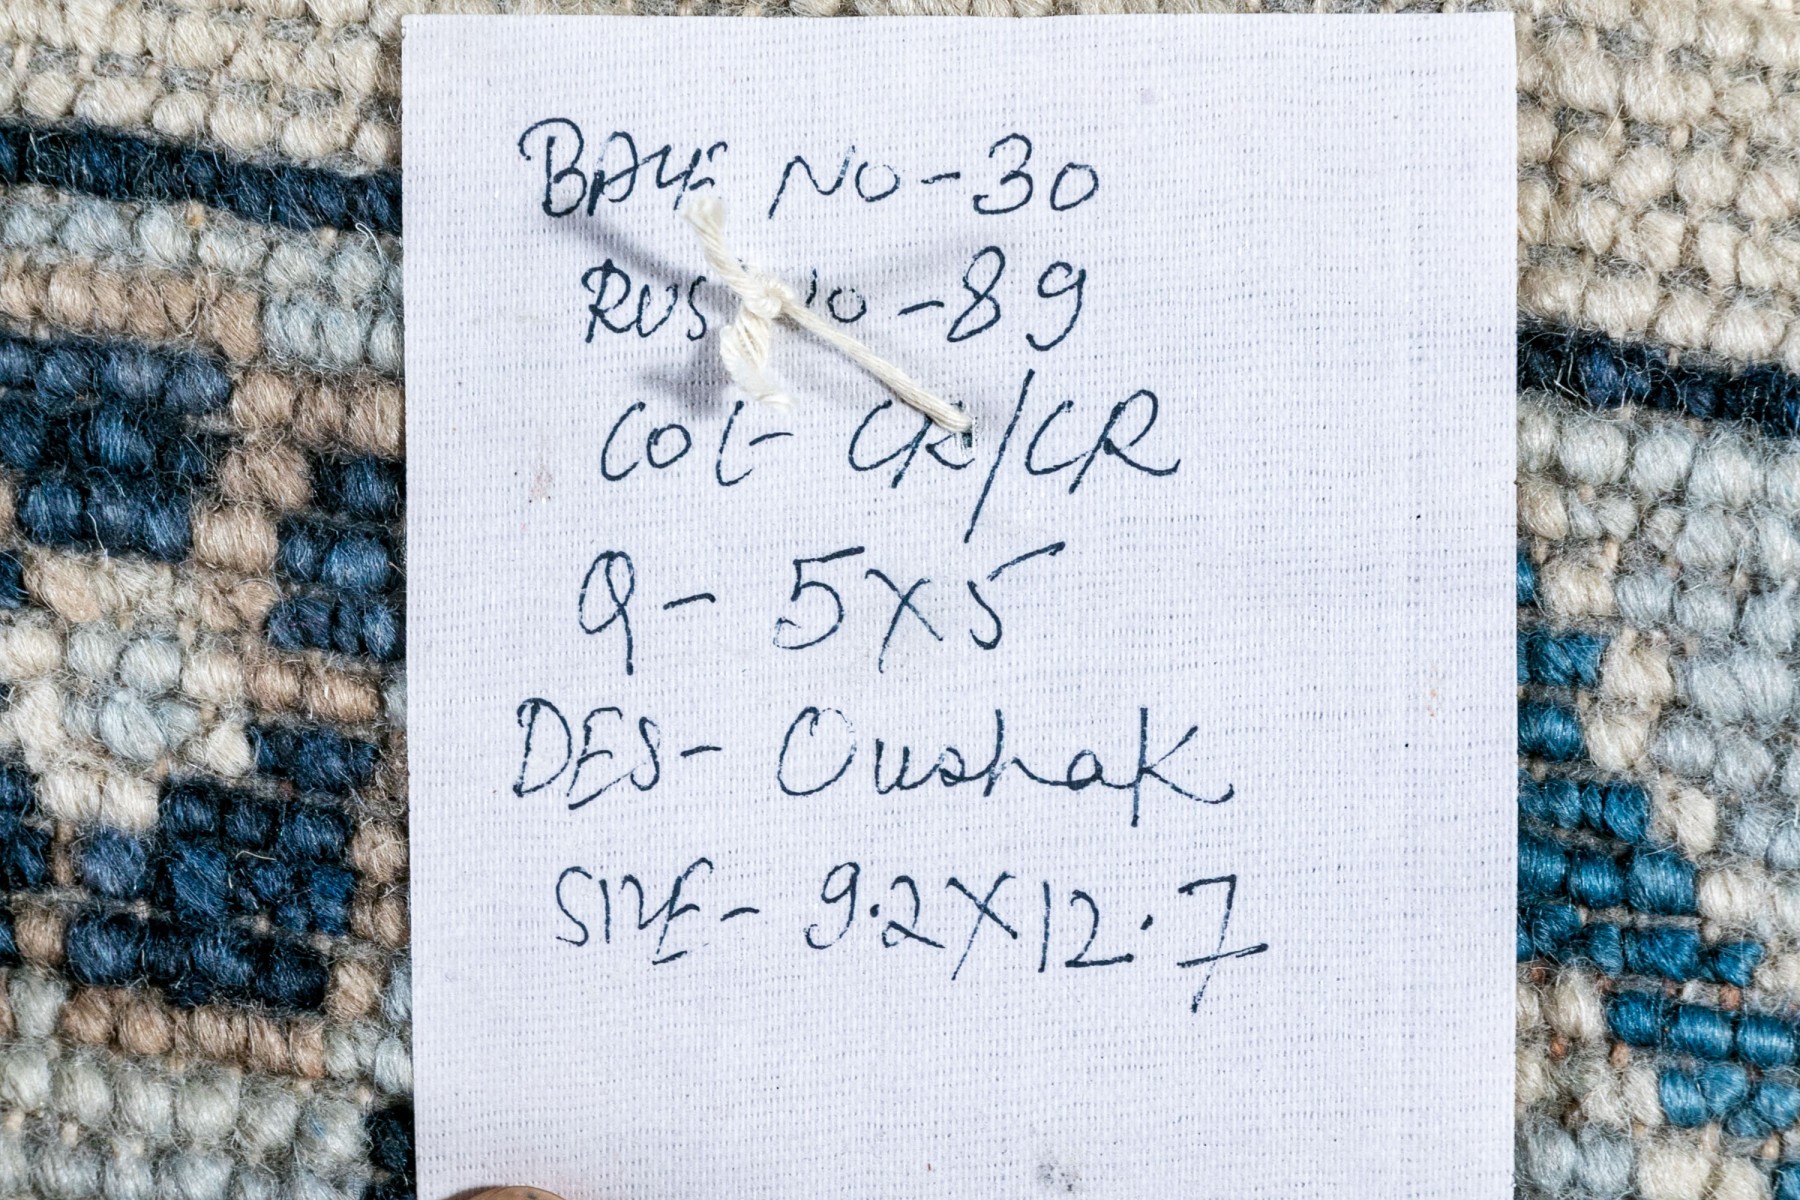 BALE NO-30
RUS NO-89
COL- CR/CR
Q- 5X5
DES- Oushak
SIZE- 9.2X12.7